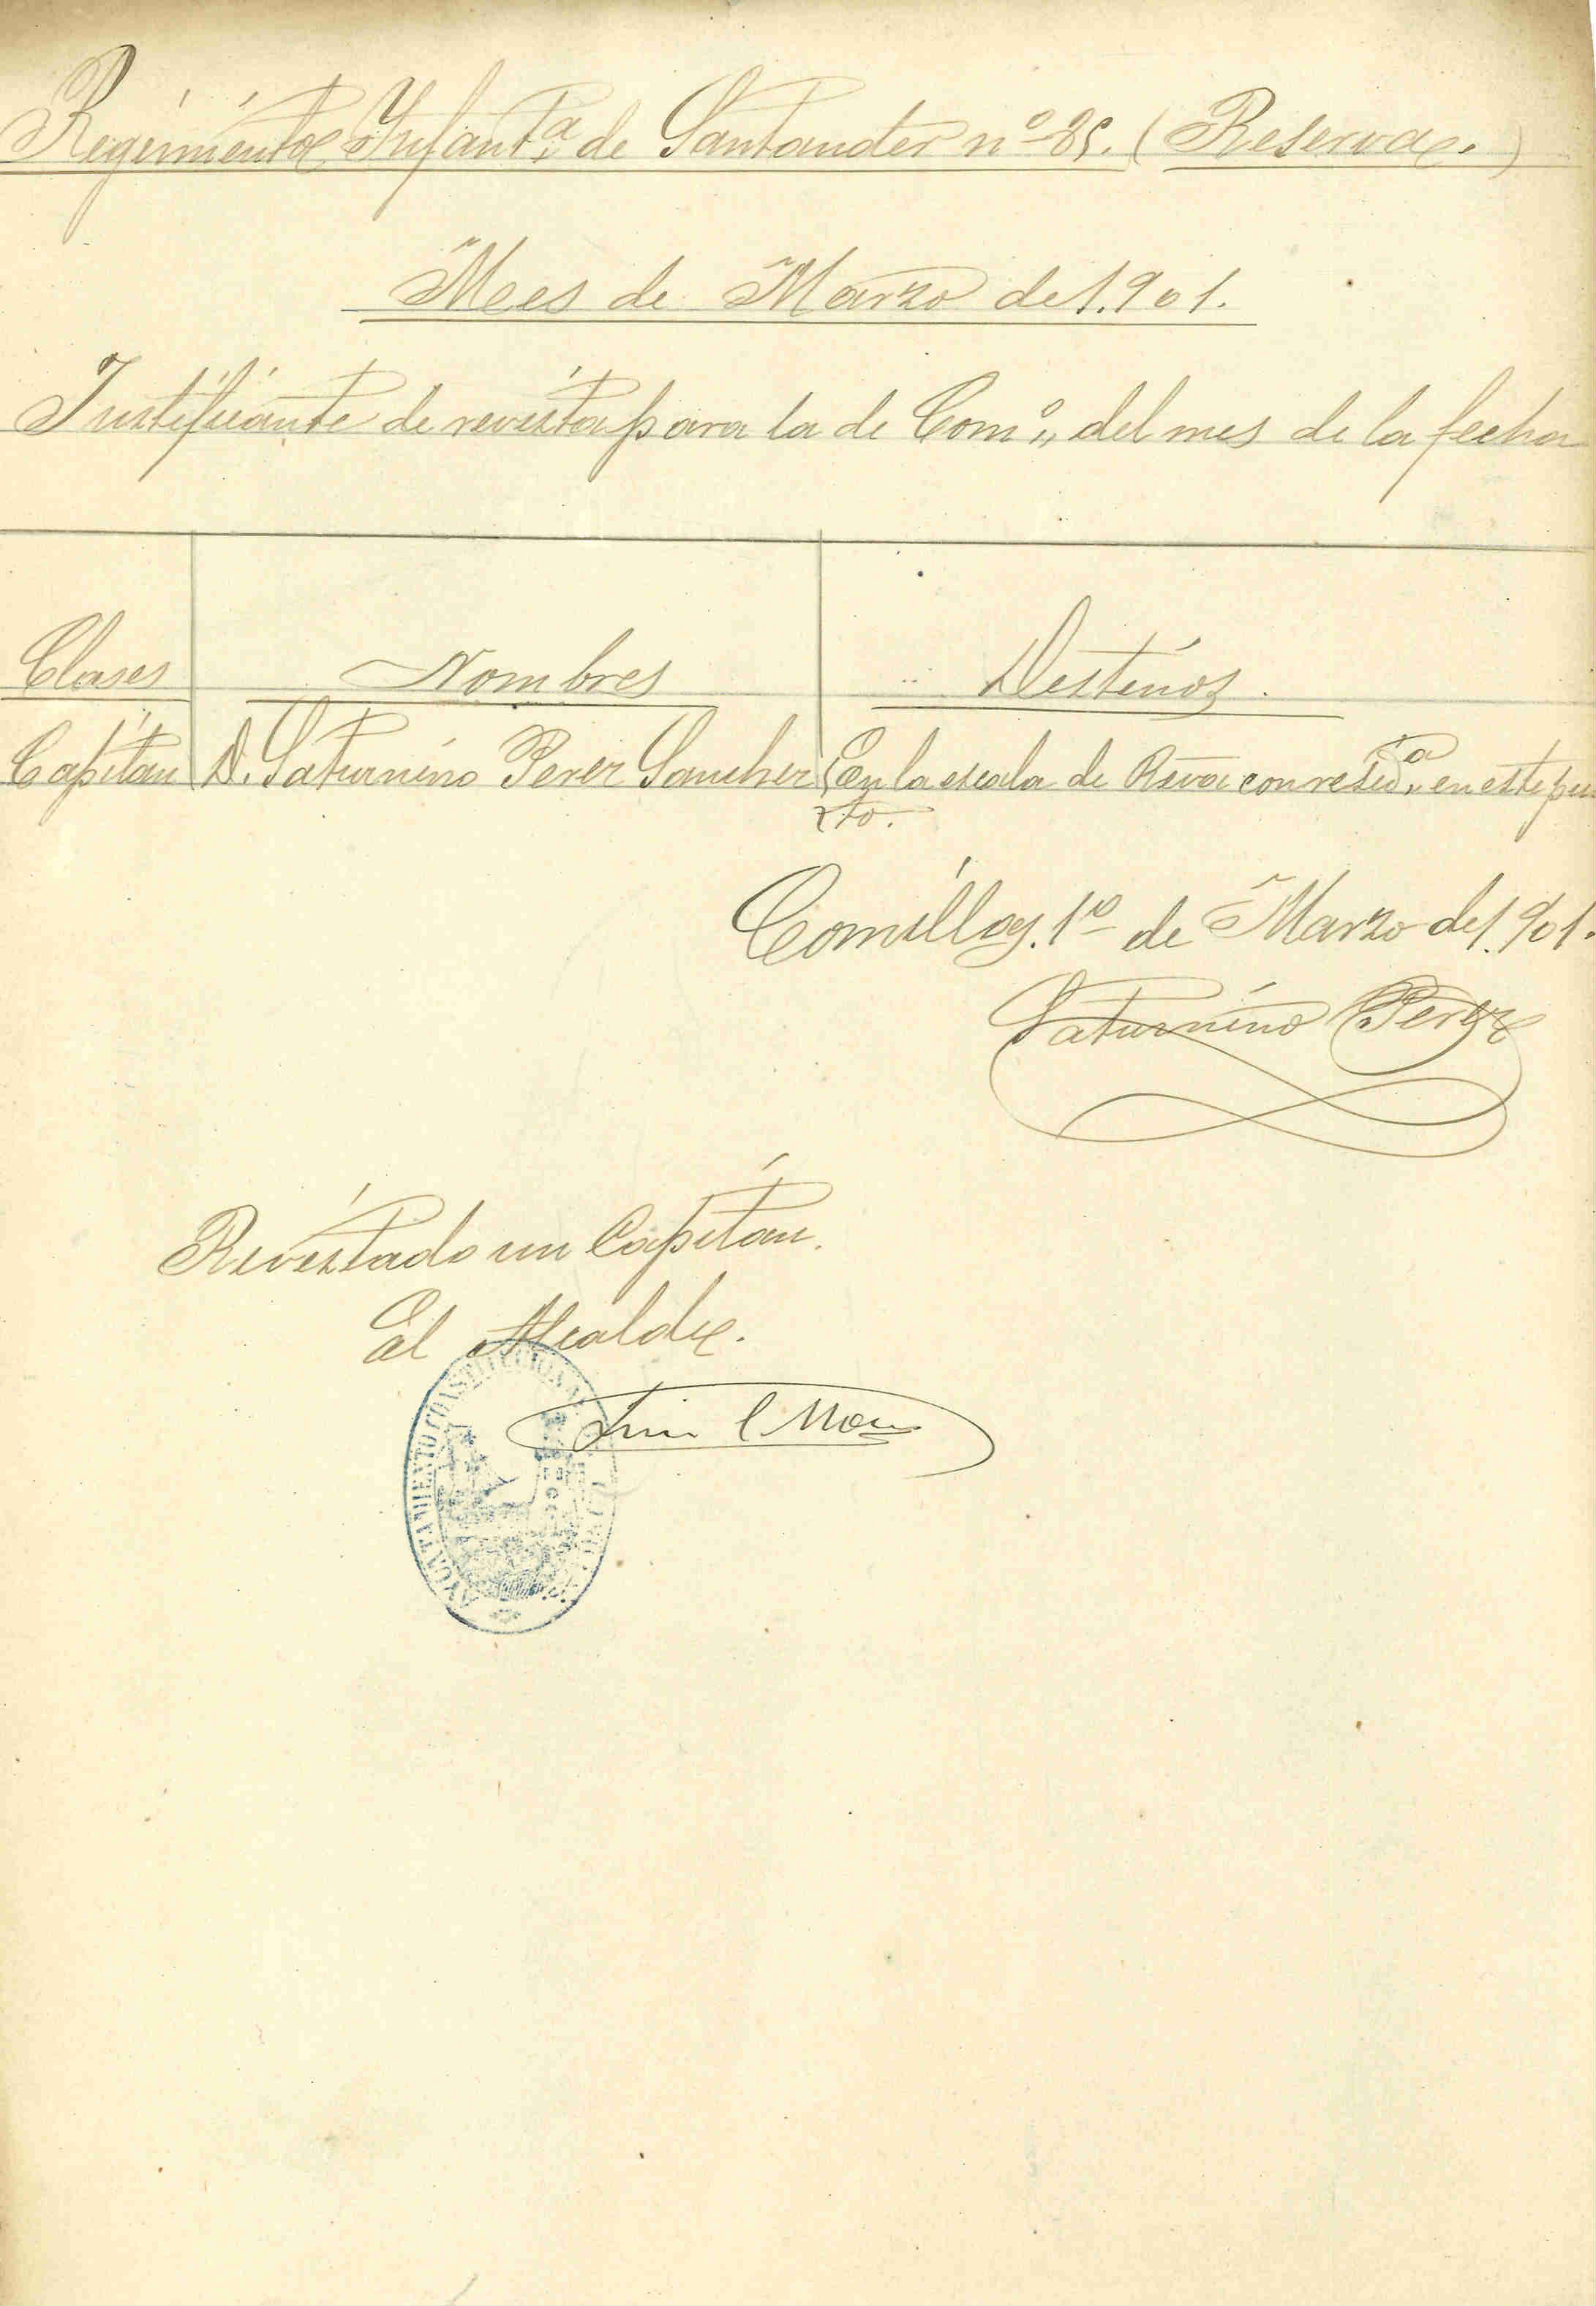 Regimiento Infantª de Santander nº 85. (Reserva.)
Mes de Marzo de 1.901.
Justificante de revista para la de Comº,, del mes de la fecha
Clases Nombres Destinos.
Capitan D. Saturnino Perez Sanchez En la escala de Rsva con residª,, en este pun
to.
Comillas. 1º de Marzo de 1.901.
Saturnino Perez
Revistado un Capitan.
El Alcalde.
AYUNTAMIENTO CONSTITUCIONAL